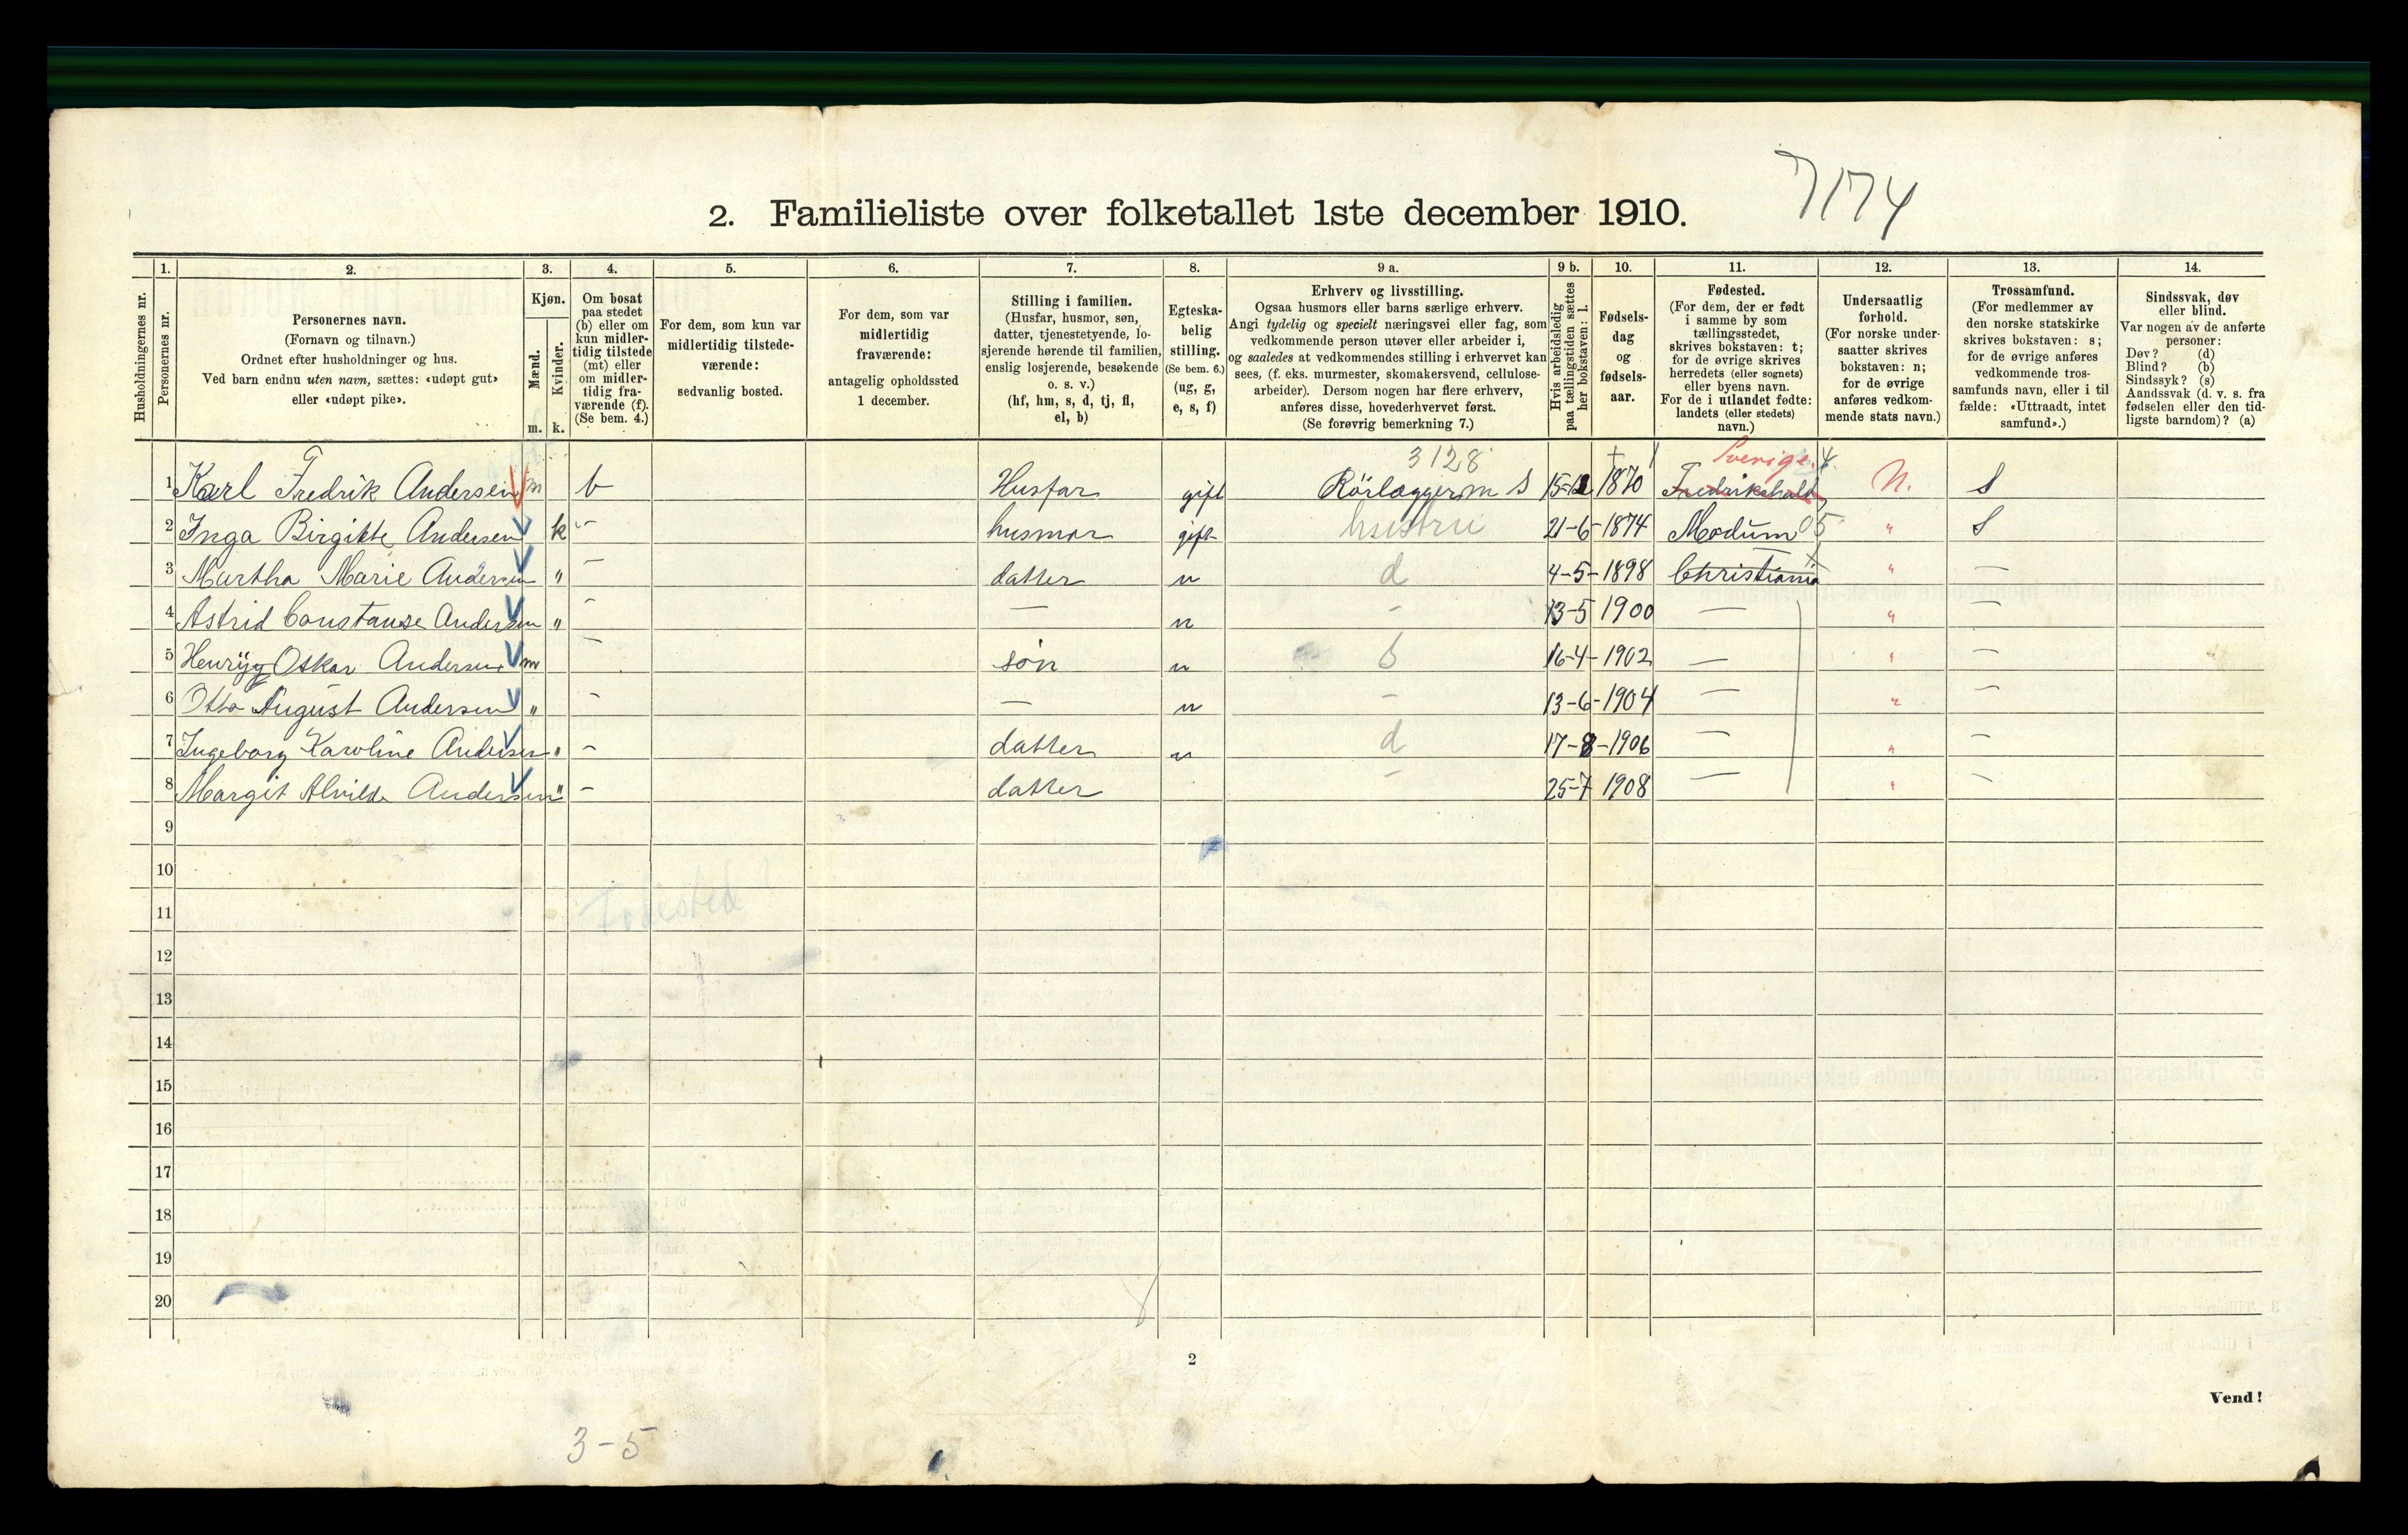 7174
2. Familieliste over folketallet 1ste december 1910.
Husholdningernes nr.
1.
Personernes nr.
2.
Personernes navn.
(Fornavn og tilnavn.)
Ordnet efter husholdninger og hus.
Ved barn endnu uten navn, sættes: «udøpt gut»
eller «udøpt pike».
3.
Kjøn.
Mænd.
Kvinder.
m. k.
4.
Om bosat
paa stedet
(b) eller om
kun midler-
tidig tilstede
(mt) eller
om midler-
tidig fra-
værende (f).
(Se bem. 4.)
5.
For dem, som kun var
midlertidig tilstede-
værende:
sedvanlig bosted.
6.
For dem, som var
midlertidig
fraværende:
antagelig opholdssted
1 december.
7.
Stilling i familien.
(Husfar, husmor, søn,
datter, tjenestetyende, lo-
sjerende hørende til familien,
enslig losjerende, besøkende
o. s. v.)
(hf, hm, s, d, tj, fl,
el, b)
8.
Egteska-
belig
stilling.
(Se bem. 6.)
(ug, g,
e, s, f)
9 a.
Erhverv og livsstilling.
Ogsaa husmors eller barns særlige erhverv.
Angi tydelig og specielt næringsvei eller fag, som
vedkommende person utøver eller arbeider i,
og saaledes at vedkommendes stilling i erhvervet kan
sees, (f. eks. murmester, skomakersvend, cellulose-
arbeider). Dersom nogen har flere erhverv,
anføres disse, hovederhvervet først.
(Se forøvrig bemerkning 7.)
9 b.
Hvis arbeidsledig
paa tællingstiden sættes
her bokstaven: l.
10.
Fødsels-
dag
og
fødsels-
aar.
11.
Fødested.
(For dem, der er født
i samme by som
tællingsstedet,
skrives bokstaven: t;
for de øvrige skrives
herredets (eller sognets)
eller byens navn.
For de i utlandet fødte:
landets (eller stedets)
navn.)
12.
Undersaatlig
forhold.
(For norske under-
saatter skrives
bokstaven: n;
for de øvrige
anføres vedkom-
mende stats navn.)
13.
Trossamfund.
(For medlemmer av
den norske statskirke
skrives bokstaven: s;
for de øvrige anføres
vedkommende tros-
samfunds navn, eller i til
fælde: «Uttraadt, intet
samfund».)
14.
Sindssvak, døv
eller blind.
Var nogen av de anførte
personer:
Døv? (d)
Blind? (b)
Sindssyk? (s)
Aandssvak (d. v. s. fra
fødselen eller den tid-
ligste barndom)? (a)
3128 Sverige. 4
1 Karl Fredrik Andersen m b Husfar gift Rörlegger m S 15-12 1870 Fredrikshald N. S
2 Inga Birgitte Andersen k - husmor gift hustru 21-6-1874 Modum 05 " S
3 Martha Marie Andersen " - datter u d 4-5-1898 Christiania " -
4 Astrid Constanse Andersen " - - u - 13-5 1900 - " -
5 Oskar Andersen m - søn u S 16-4-1902 - " -
6 Otto August Andersen " - - u - 13-6-1904 - " -
7 Ingeborg Karoline Andersen " - datter u d 17-8-1906 - " -
8 Margit Alvilde Andersen " - datter - 25-7 1908 - " -
9
10
11 Fødested
12
13
14
15
16
17
18
19
20
2
Vend!
3-5